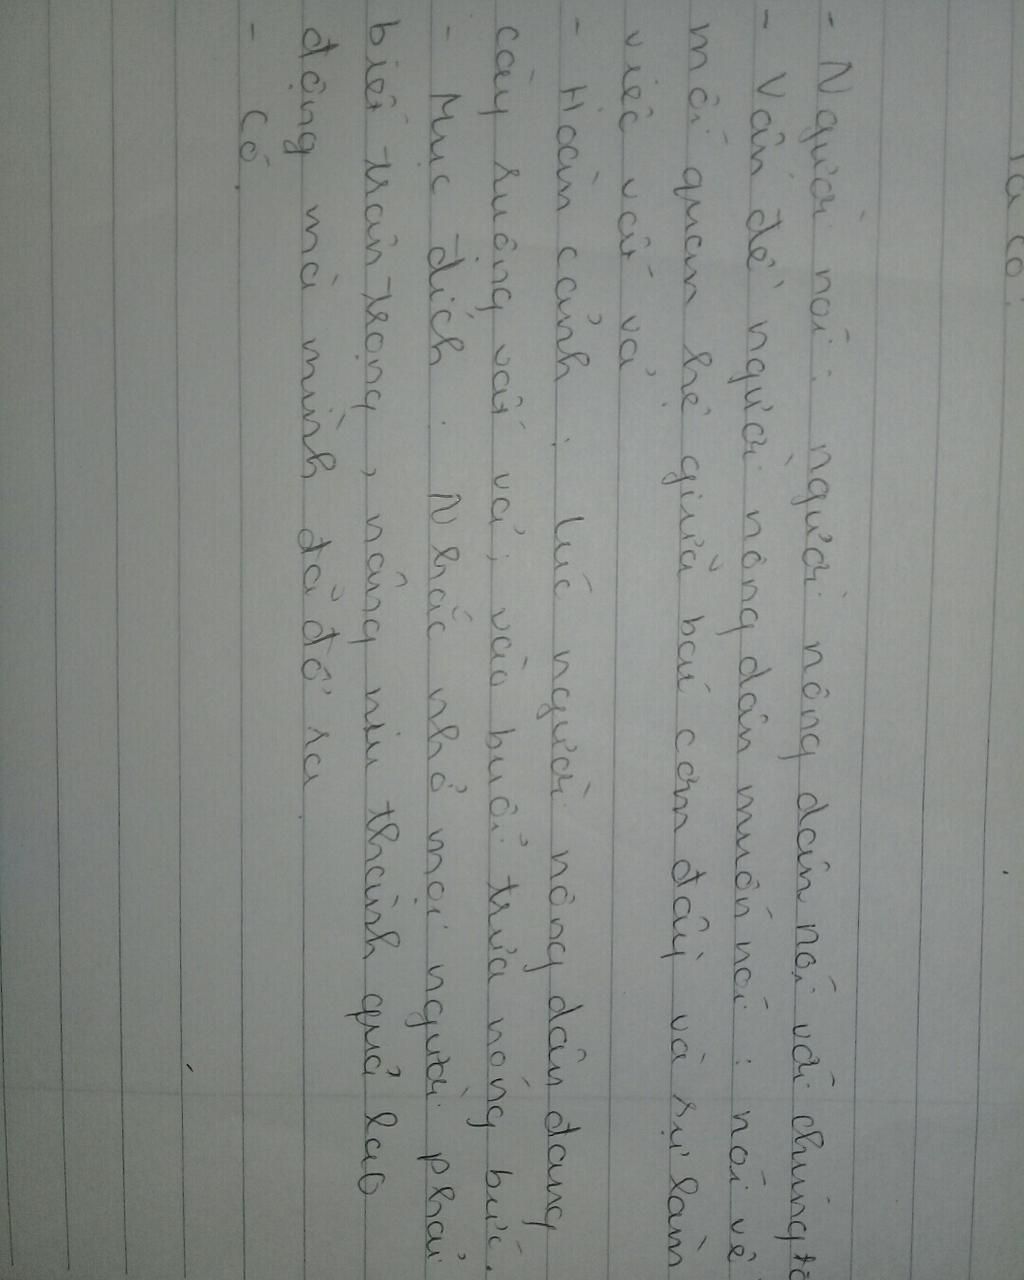 - Người nói: người nông dân nói với chúng tô
- Vấn đề người nông dân muốn nói: nói về
mối quan hệ giữa bát cơm đầy và sự làm
việc vất vả
- Hoàn cảnh: lúc người nông dân đang
cày ruộng vất vả; vào buổi trưa nóng bức.
- Mục đích: Nhắc nhở mọi người phải
biết trân trọng, nâng niu thành quả lao
động mà mình đã đổ ra.
- Có.